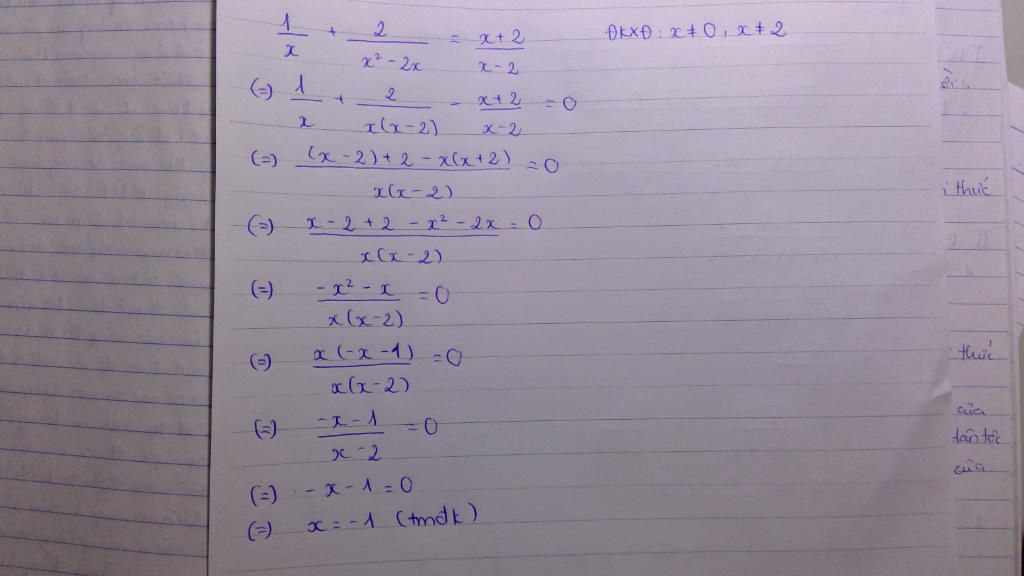 1/x + 2/(x² - 2x) = (x+2)/(x-2) ĐKXĐ: x ≠ 0, x ≠ 2
(=) 1/x + 2/(x(x-2)) - (x+2)/(x-2) = 0
(=) ((x-2)+2-x(x+2))/(x(x-2)) = 0
(=) (x-2+2-x²-2x)/(x(x-2)) = 0
(=) (-x²-x)/(x(x-2)) = 0
(=) (x(-x-1))/(x(x-2)) = 0
(=) (-x-1)/(x-2) = 0
(=) -x-1=0
(=) x=-1 (tmđk)
thức
thức
của
dân tộc
của